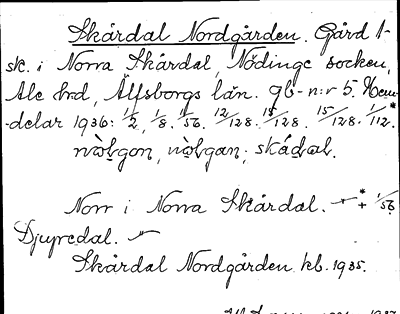 Skårdal Nordgården. Gård 1-
sk. i Norra Skårdal, Nödinge socken,
Ale hrd, Älfsborgs län. gb-n:r 5. Hem-
-delar 1936: 1/2, 1/8. 1/56. 12/128. 15/128. 15/128. 1/112.*
Norr i Norra Skårdal. * + 1/56
Djupedal.
Skårdal Nordgården kb. 1935.